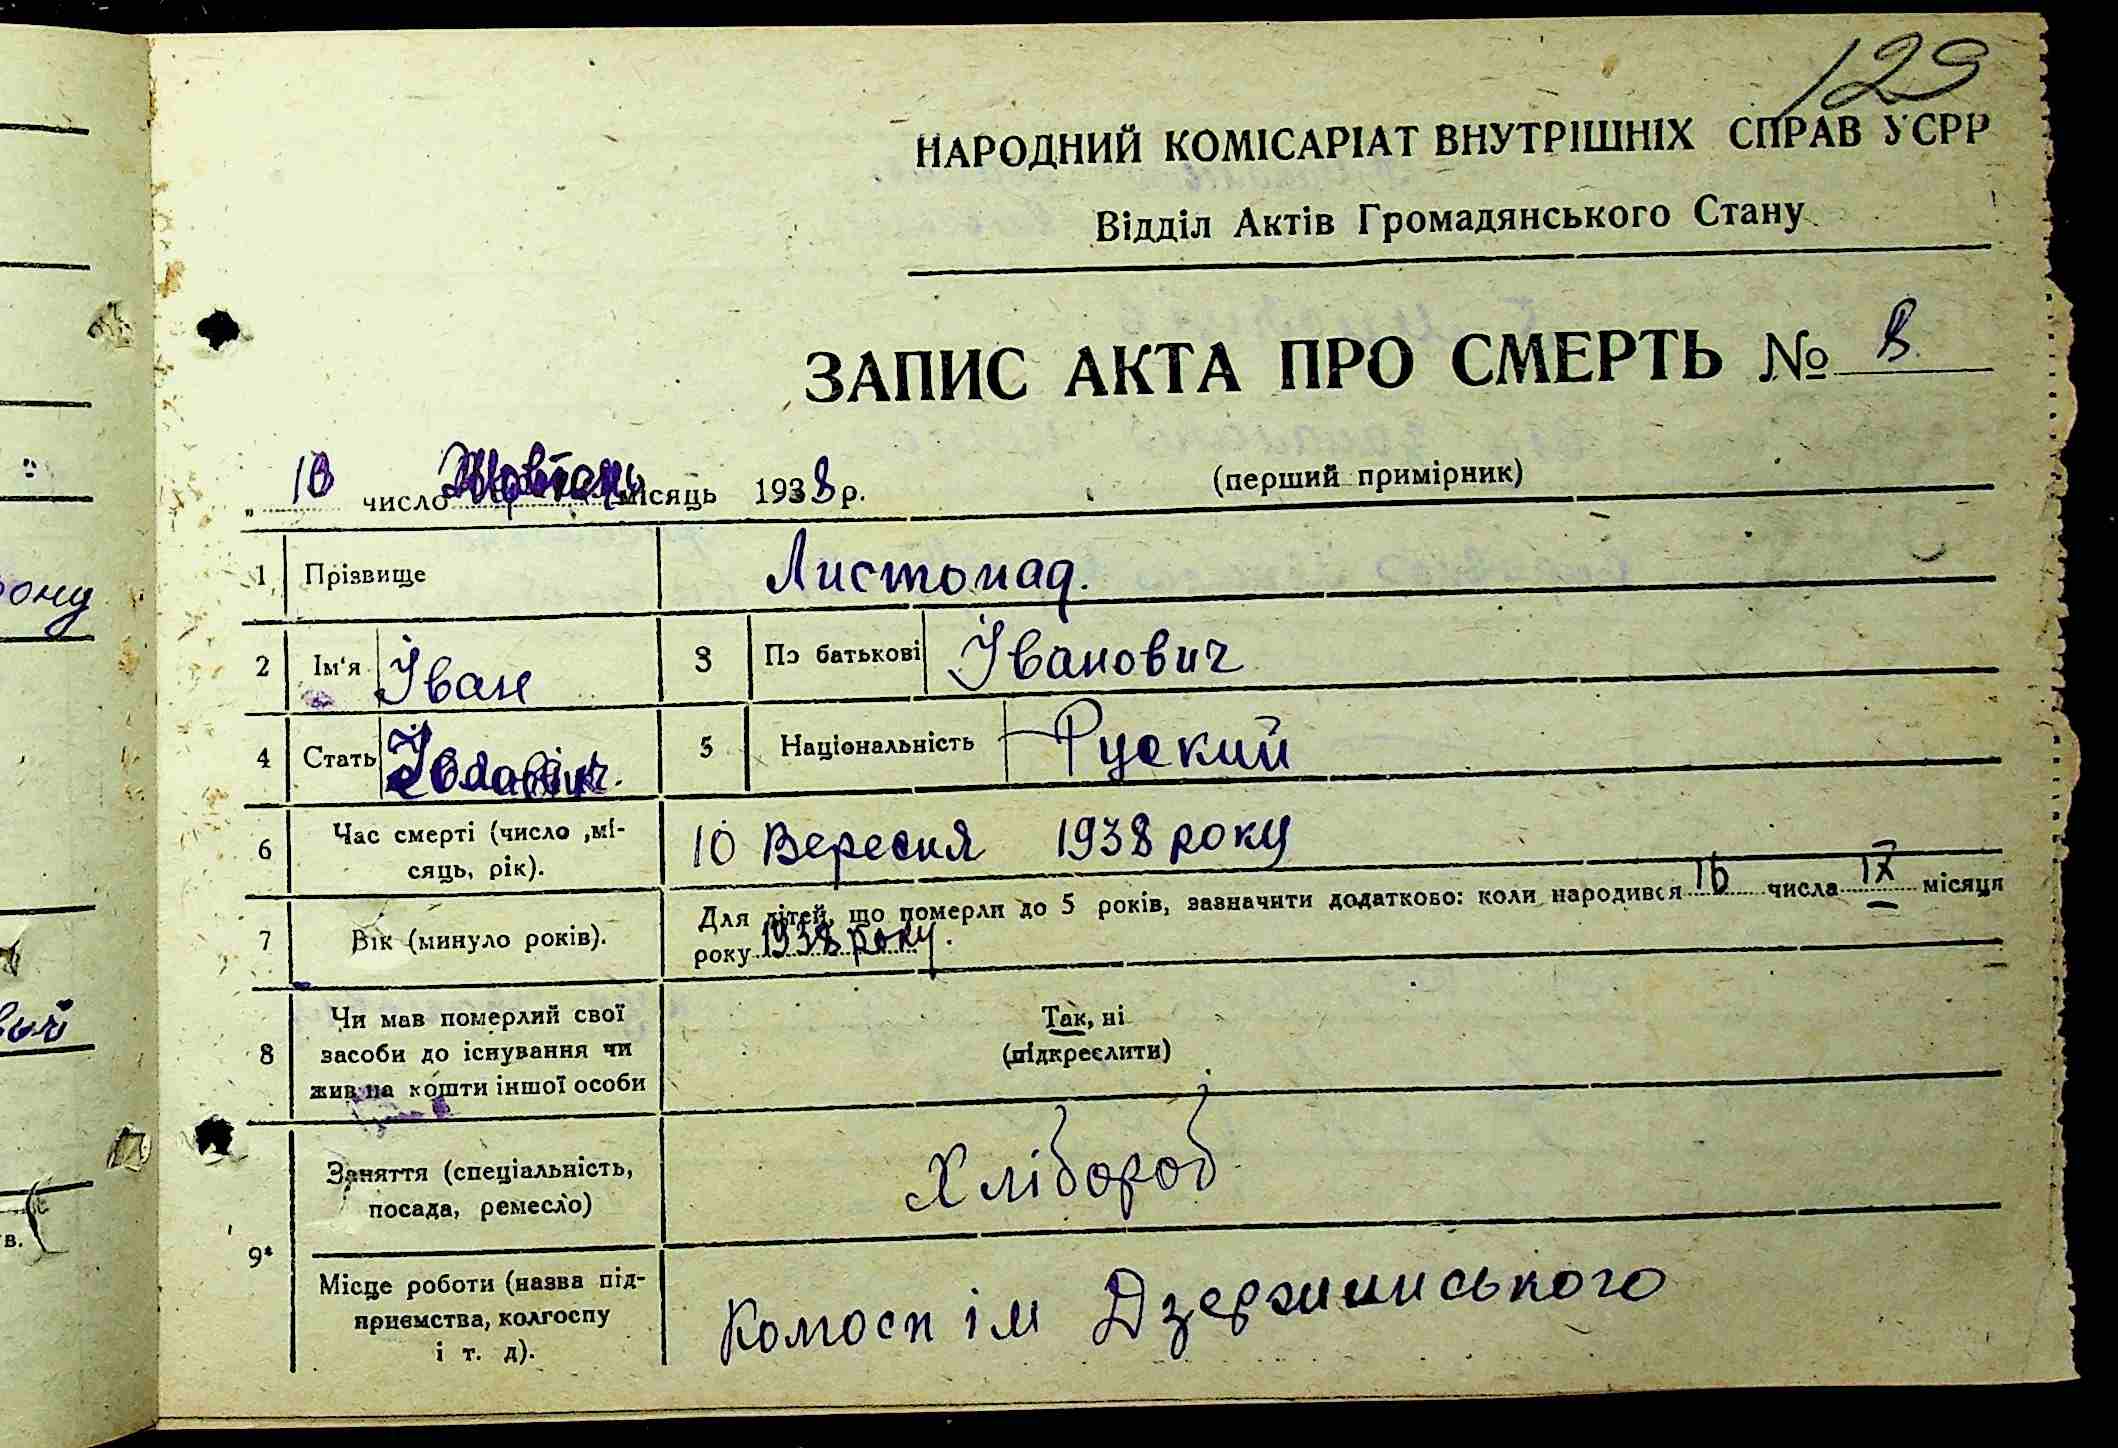 129
НАРОДНИЙ КОМІСАРІАТ ВНУТРІШНІХ СПРАВ УСРР
Відділ Актів Громадянського Стану
ЗАПИС АКТА ПРО СМЕРТЬ № 8
"10 число Жовтень місяць 1938 р.
(перший примірник)
1 Прізвище Листопад.
2 Ім'я Іван 3 По батькові Іванович
4 Стать 5 Національність Руский
6 Час смерті (число ,мі-
сяць, рік).
10 Вересня 1938 року
7 Вік (минуло років).
Для дітей, що померли до 5 років, зазначити додатково: коли народився 16 числа IX місяця
року 1938 року.
8 Чи мав померлий свої
засоби до існування чи
жив на кошти іншої особи
Так, ні
(підкреслити)
9*
Заняття (спеціальність,
посада, ремесло)
Хлібороб
Місце роботи (назва під-
приємства, колгоспу
і т. д).
Колгосп ім Дзержинського
ону
вий
тв.